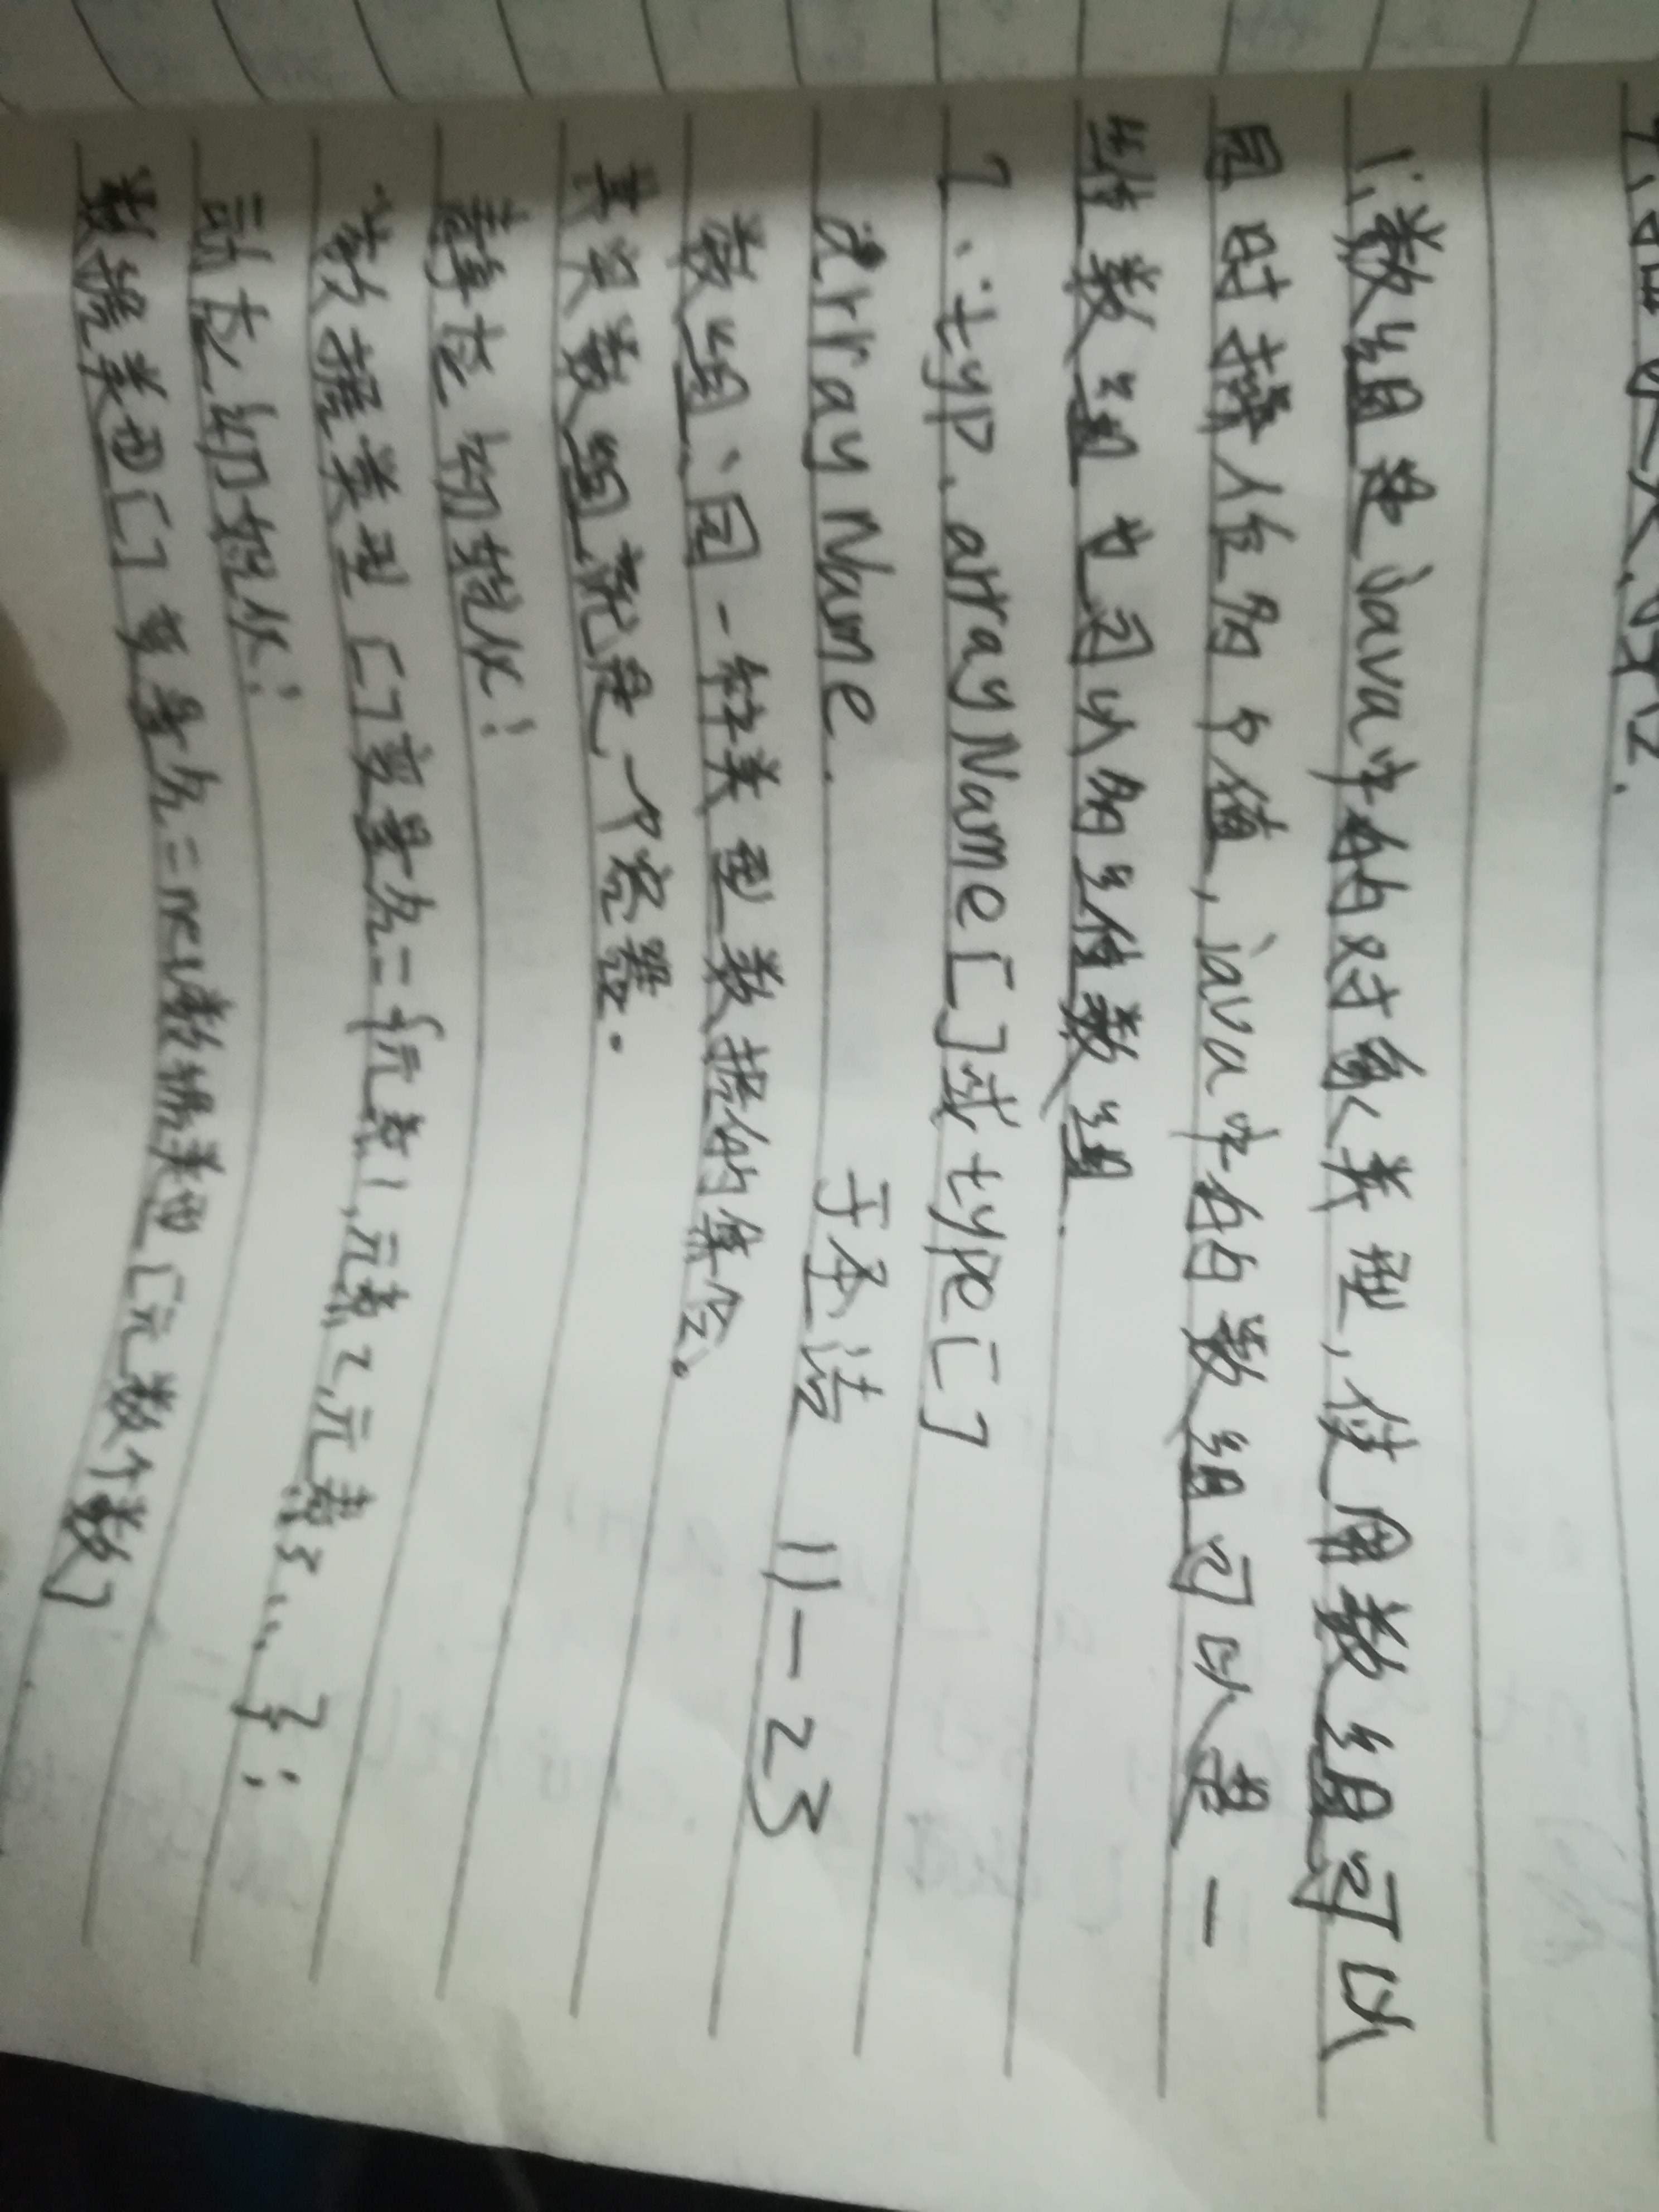 1.数组是java中的对象类型,使用数组可以
同时操作多个值,java中的数组可以是一
维数组也可以多维数组.
2.:typ.arrayName[]或type[]
arrayName. 11-23
数组:同一种类型数据的集合。
其实数组就是一个容器.
静态初始化:
数据类型[]变量名={元素1,元素2,元素3...};
动态初始化:
数据类型[]变量名=new数据类型[元数个数]